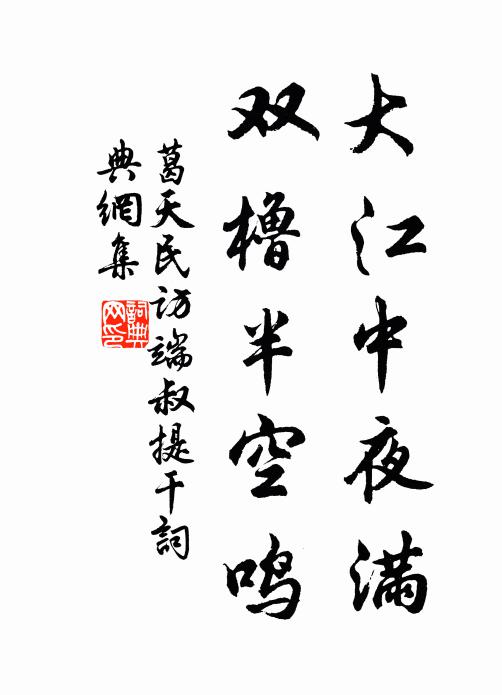 大江中夜满
双橹半空鸣
葛天民访端叔提干詞
典網集
詞典
网印